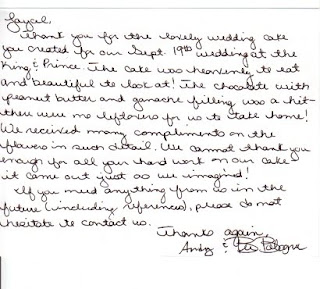 Jaycel,
Thank you for the lovely wedding cake
you created for our Sept. 19th wedding at the
King & Prince. The cake was heavenly to eat
and beautiful to look at! The chocolate with
peanut butter and ganache filling was a hit-
there were no leftovers for us to take home!
We received many compliments on the
flowers in such detail. We cannot thank you
enough for all your hard work on our cake
it came out just as we imagined!
If you need anything from us in the
future (including references), please do not
hesitate to contact us.
Thanks again,
Andy &